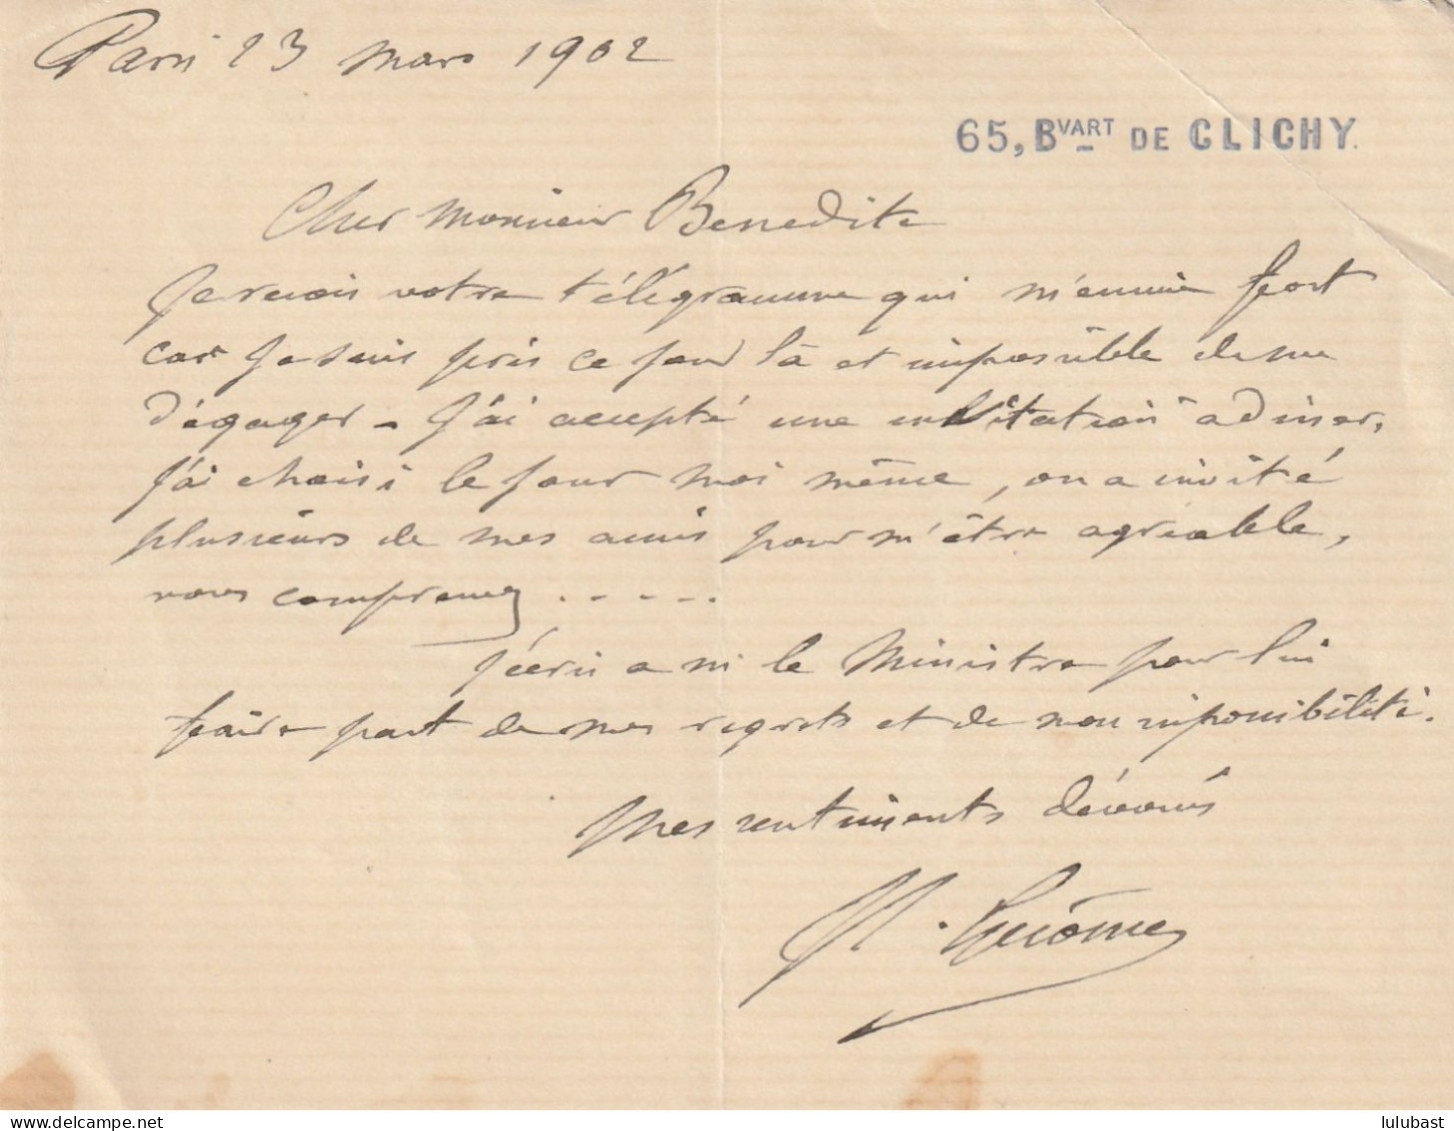 Paris 23 mars 1902
65, BVART DE CLICHY.
Cher Monsieur Benedite
Je reçois votre télégramme qui m'ennuie fort
car je suis pris ce jour là et impossible de me
dégager - J'ai accepté une invitation à diner,
j'ai choisi le jour moi même, on a invité
plusieurs de mes amis pour m'être agréable,
vous comprenez.....
J'écris a M le Ministre pour lui
faire part de mes regrets et de mon impossibilité.
Mes sentiments dévoués
Gérôme
delcampe.net
lulubast